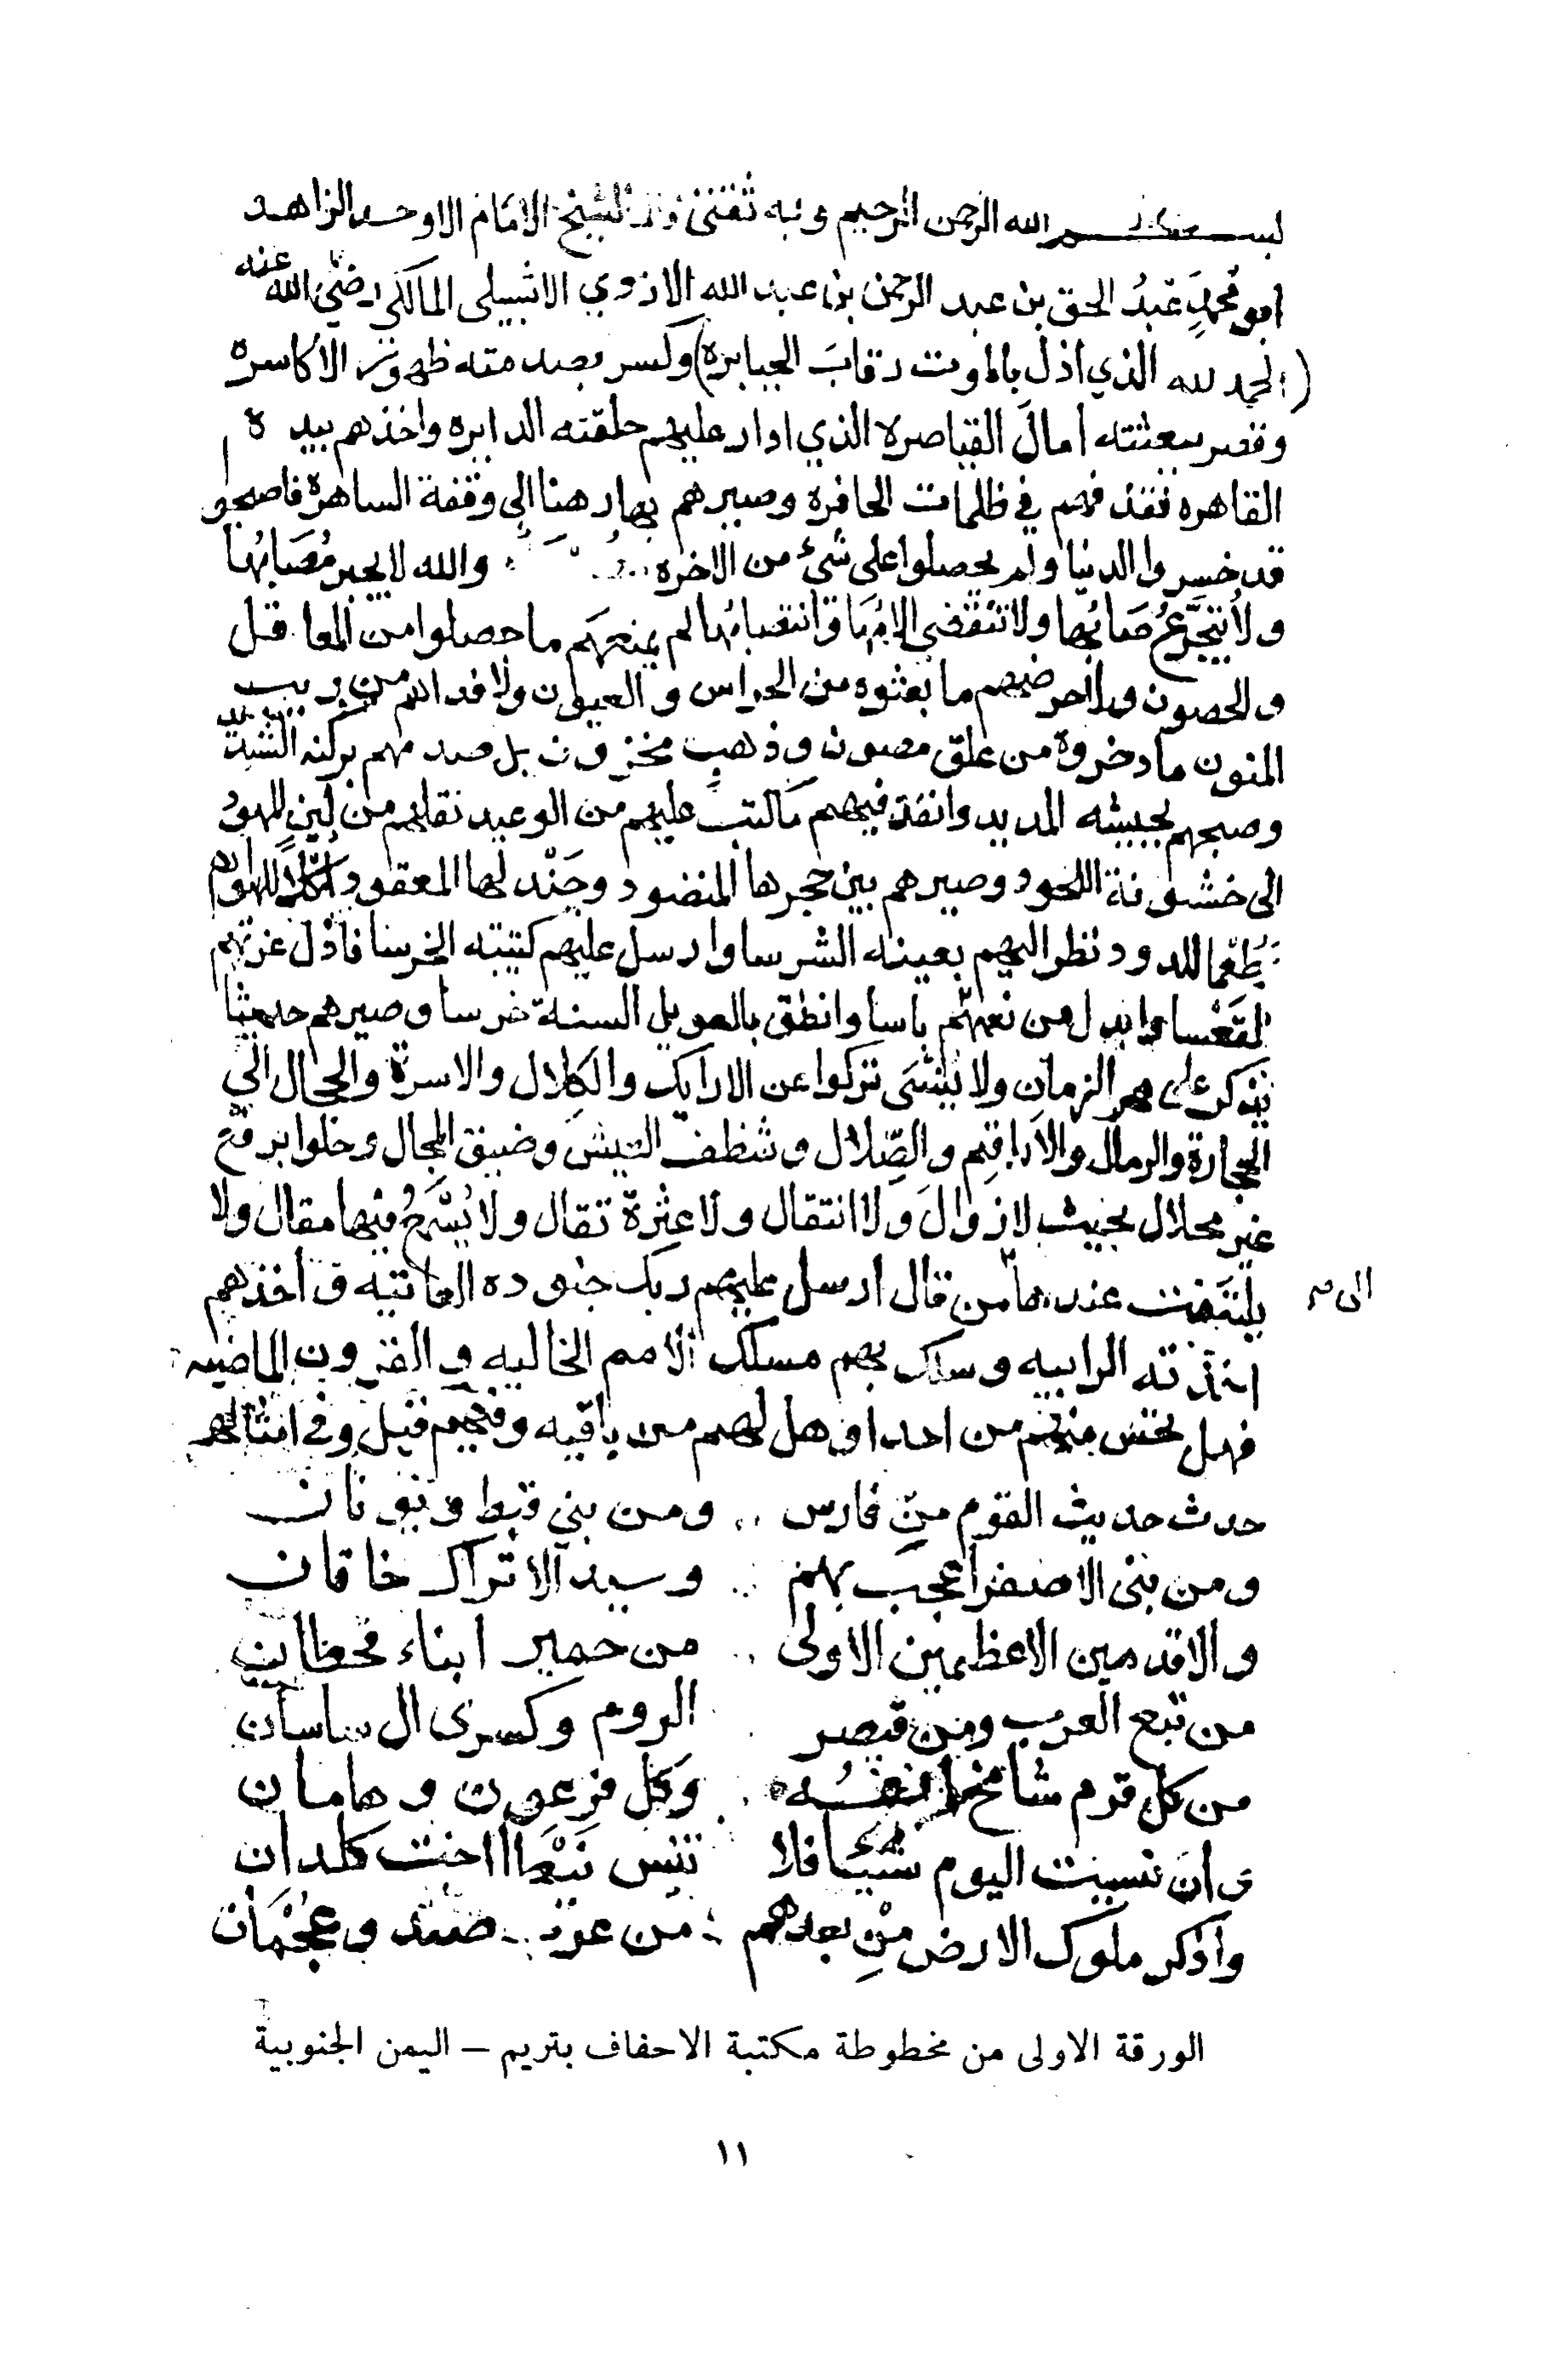 بسم الله الرحمن الرحيم وبه ثقتي الشيخ الامام الاوحد الزاهد
ابو محمدٍ عبدُ الحق بن عبد الرحمن بن عبد الله الازدي الاشبيلي المالكي رضي الله عنه
(الحمد لله الذي اذل بالموت رقابَ الجبابره) وكسر بصدمته ظهور الاكاسره
وقصر ببغتته امالَ القياصرة الذي ادار عليهم حلقته الدايره واخذهم بيده
القاهره فقذفهم في ظلمات الحافرة وصيرهم بها رهنا الى وقفة الساهرة فاصبحوا
قد خسروا الدنيا ولم يحصلوا على شئ من الاخره والله لا يجبر مُصَابُها
ولا يُتجَرَّع صَابُها ولا تنقضي الامُهَا واتصابُها لم يمنعهم ما حصلوا من المعاقل
والحصون ولا حرضهم ما بعثوه من الحراس والعيون ولا فداهم من ريب
المنون ما دخروة من علق مصون وذهب مخزون بل صدمهم بركنه الشديد
وصبحهم بجيشه المديد وانفذ فيهم ما كتب عليهم من الوعيد نقلهم من لين المهود
الى خشونة اللحود وصيرهم بين حجرها المنضود وجَنْدلها المعقود اُكلا للهوام
وطُعْما للدود نظر اليهم بعينه الشرسا وارسل عليهم كتيبته الخرسا فاذل عزتهم
القعسا وابدل من نعيمهم باسا وانطق بالعويل السنة خرسا وصيرهم حديثا
يُذكر على مر الزمان ولا يُنسَى نزلوا عن الارايك والكلال والاسرة والحجال الى
الحجارة والرمال والاراقِم والصِّلال وشظف العيش وضيق المجال وحلوا بربع
غير محلال بحيث لا زوالَ ولا انتقال ولا عثرة تقال ولا يُسْمَعُ فيها مقال ولا
يلتفت عندها من قال ارسل عليهم ربك جنوده العاتيه واخذهم
الى
اخذته الرابيه وسلك بهم مسلك الامم الخاليه والقرون الماضيه
فهل تحس منهم من احد او هل لهم من باقيه وفيهم قيل وفي امثالهم
حدث حديث القوم من فارس .. ومن بني قبط ويونان
ومن بني الاصفر اعجب بهم .. وسيد الاتراك خاقان
والاقدمين الاعظمين الاولى .. من حمير ابناء قحطان
من تبع العرب ومن قيصر . الروم وكسرى ال ساسان
من كل قرم شامخ انفُه .. وكل فرعون وهامان
وان نسيت اليوم شيئا فلا تنس نبطا اخت كلدان
واذكر ملوك الارض من بعدهم من عرب صيد وعُجْمَان
الورقة الاولى من مخطوطة مكتبة الاحفاف بتريم – اليمن الجنوبية
١١